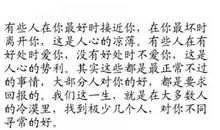 有些人在你最好时接近你，在你最坏时
离开你，这是人心的凉薄。有些人在有
好处时爱你，没有好处时不爱你，这是
人心的势利。其实这些都是最正常不过
的事情，大部分人对你的好，都是要求
回报的。我们这一生，就是在大多数人
的冷漠里，找到极少几个人，对你不同
寻常的好。